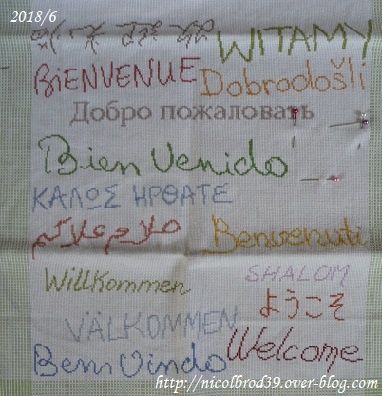 2018/6
WITAMY
BIENVENUE Dobrodošli
Добро пожаловать
Bien Venido
ΚΑΛΩΣ ΗΡΘΑΤΕ
Benvenuti
Willkommen SHALOM
ようこそ
VÄLKOMMEN
Bem Vindo Welcome
http://nicolbrod39.over-blog.com